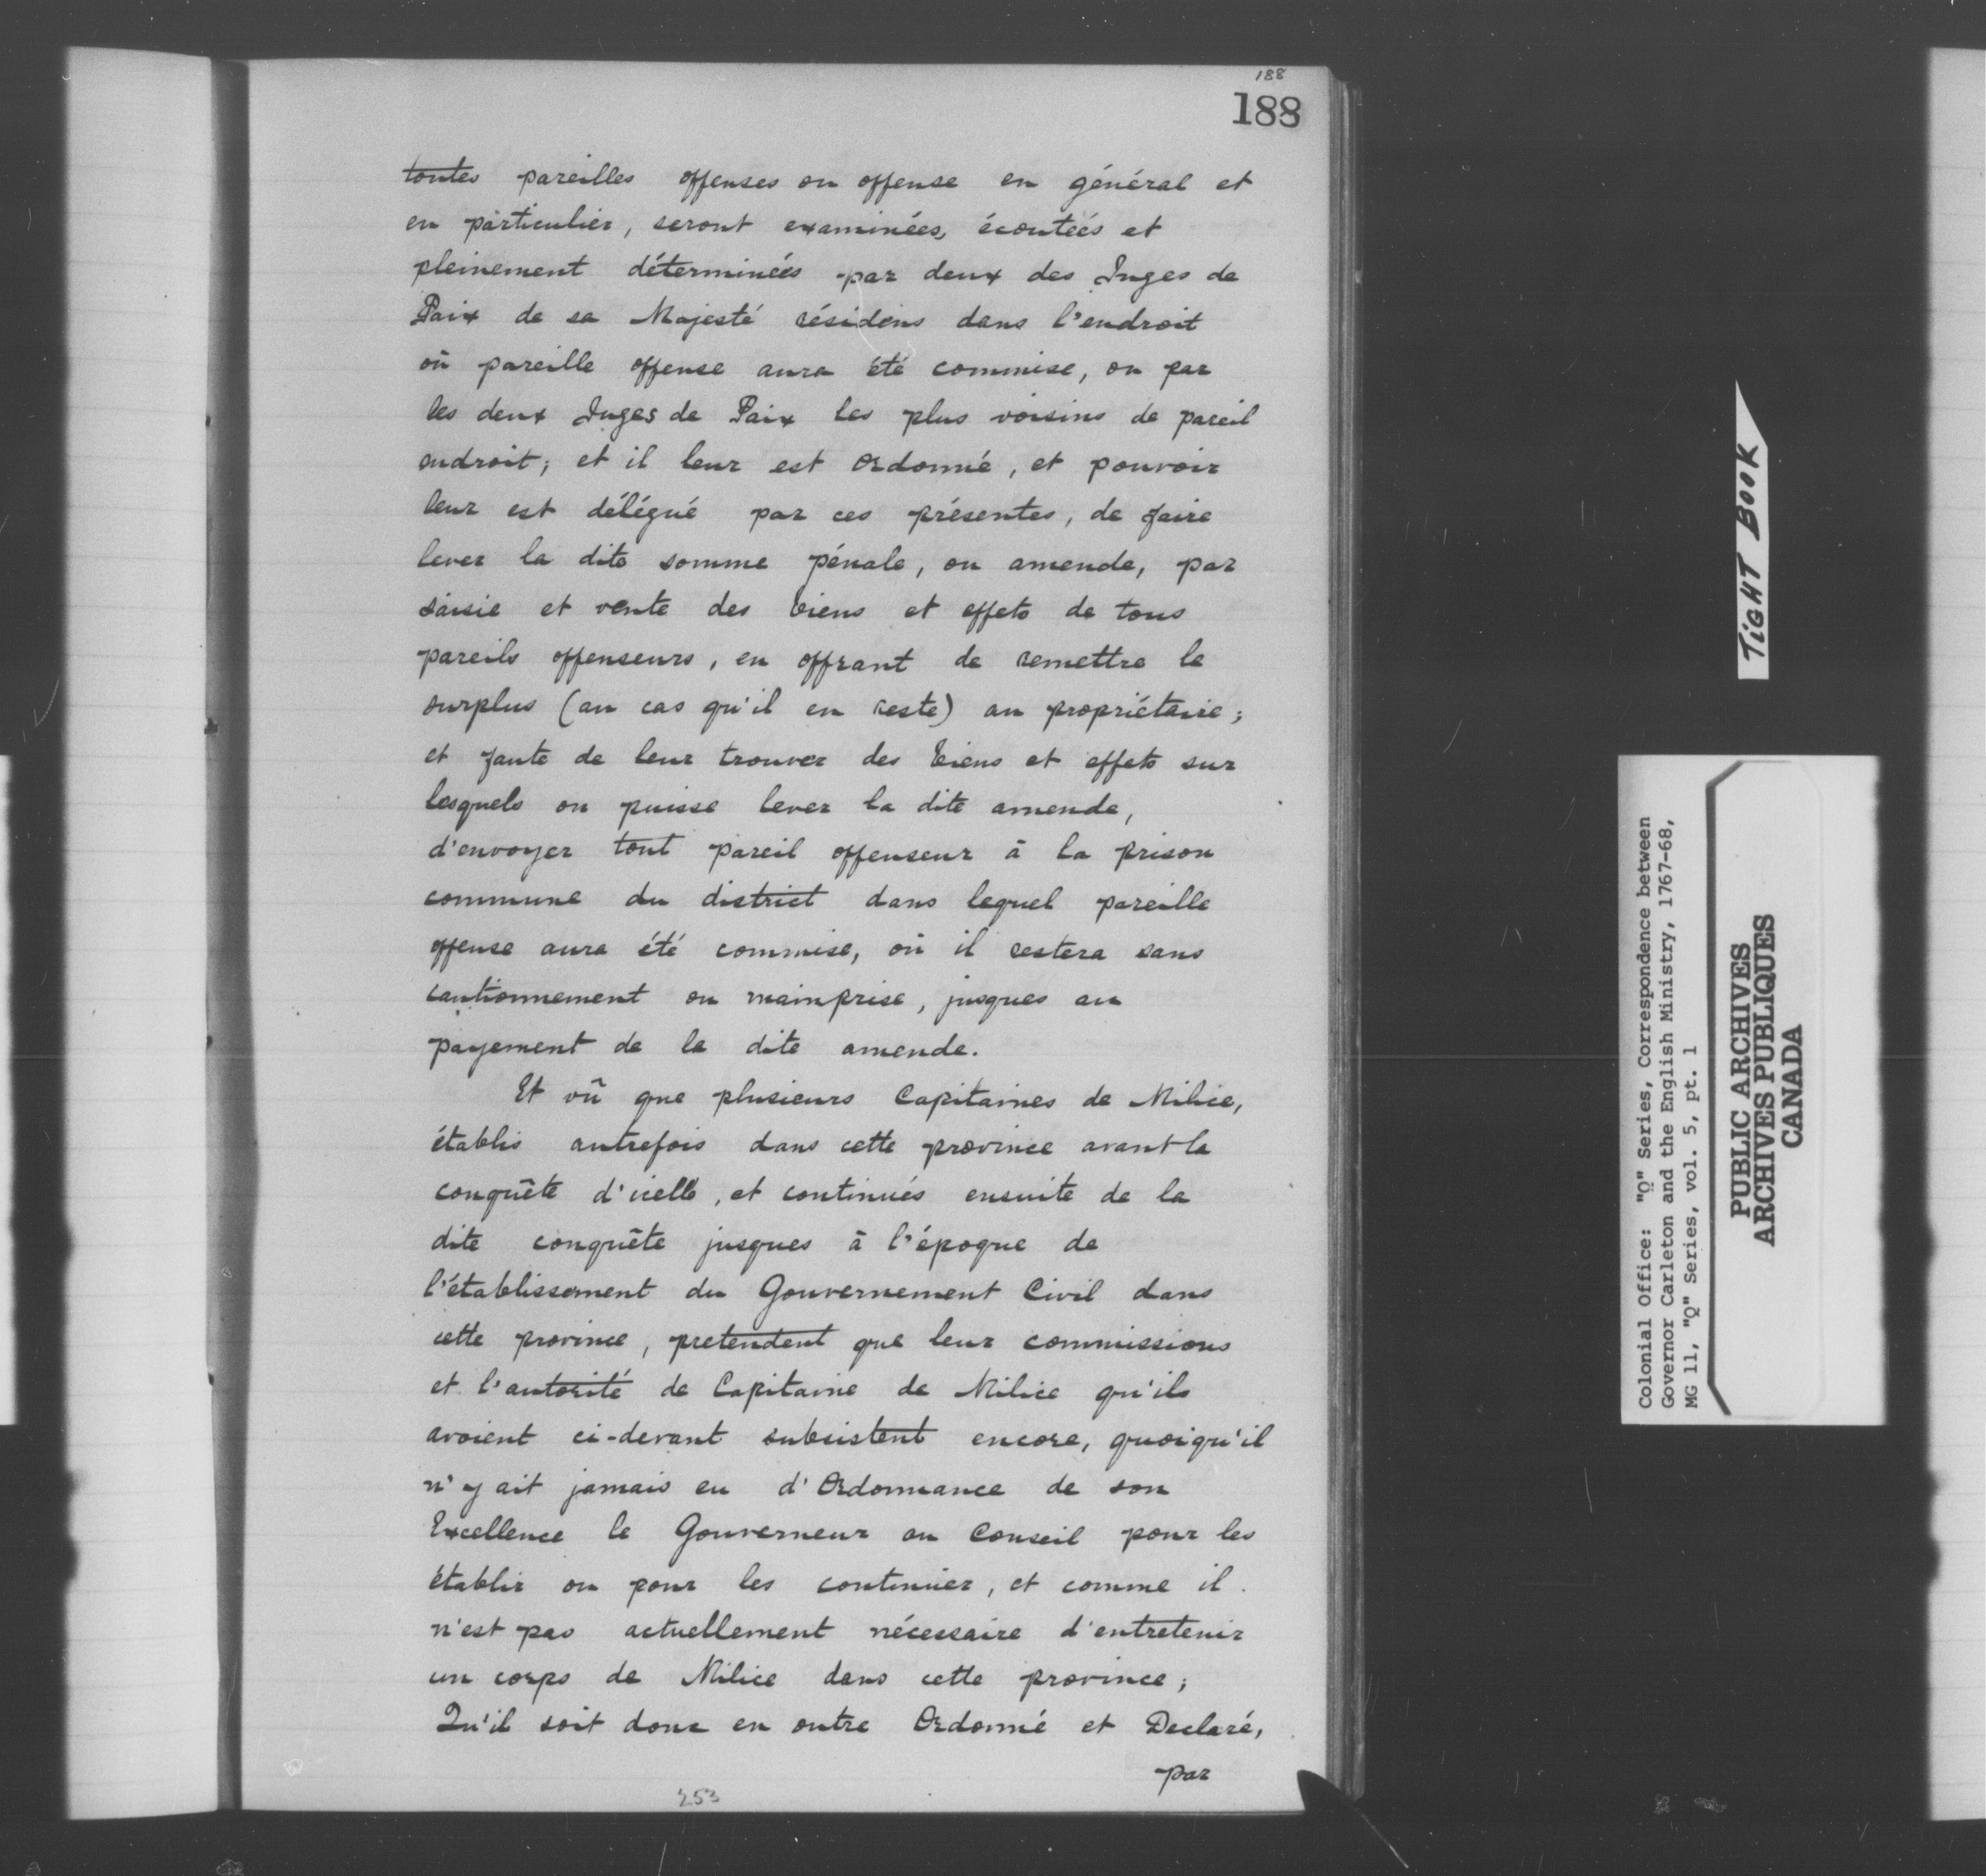 188
188
toutes pareilles offenses ou offense en général et
en particulier, seront examinées, écoutées et
pleinement déterminées par deux des Juges de
Paix de sa Majesté résidens dans l'endroit
où pareille offense aura été commise, ou par
les deux Juges de Paix les plus voisins de pareil
endroit; et il leur est Ordonné, et pouvoir
leur est délégué par ces présentes, de faire
lever la dite somme pénale, ou amende, par
saisie et vente des biens et effets de tous
pareils offenseurs, en offrant de remettre le
surplus (au cas qu'il en reste) au propriétaire;
et faute de leur trouver des biens et effets sur
lesquels on puisse lever la dite amende,
d'envoyer tout pareil offenseur à la prison
commune du district dans lequel pareille
offense aura été commise, où il restera sans
cautionnement ou mainprise, jusques au
payement de la dite amende.
Et vû que plusieurs Capitaines de Milice,
établis autrefois dans cette province avant la
conquête d'icelle, et continués ensuite de la
dite conquête jusques à l'époque de
l'établissement du Gouvernement Civil dans
cette province, pretendent que leur commissions
et l'autorité de Capitaine de Milice qu'ils
avoient ci-devant subsistent encore, quoiqu'il
n'y ait jamais eu d'Ordonnance de son
Excellence le Gouverneur au Conseil pour les
établir ou pour les continuer, et comme il
n'est pas actuellement nécessaire d'entretenir
un corps de Milice dans cette province;
Qu'il soit donc en outre Ordonné et Declaré,
par
253
TIGHT BOOK
Colonial Office: "Q" Series, Correspondence between
Governor Carleton and the English Ministry, 1767-68,
MG 11, "Q" Series, vol. 5, pt. 1
PUBLIC ARCHIVES
ARCHIVES PUBLIQUES
CANADA